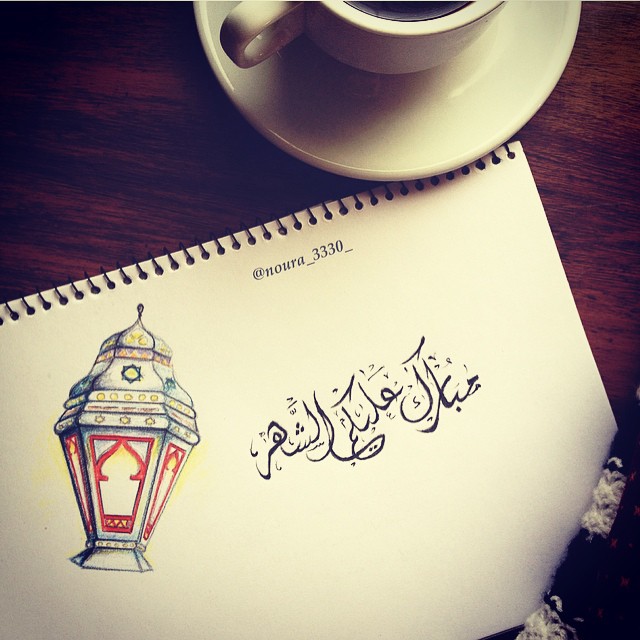 @noura_3330_
مُبارك عَليكم الشَّهر